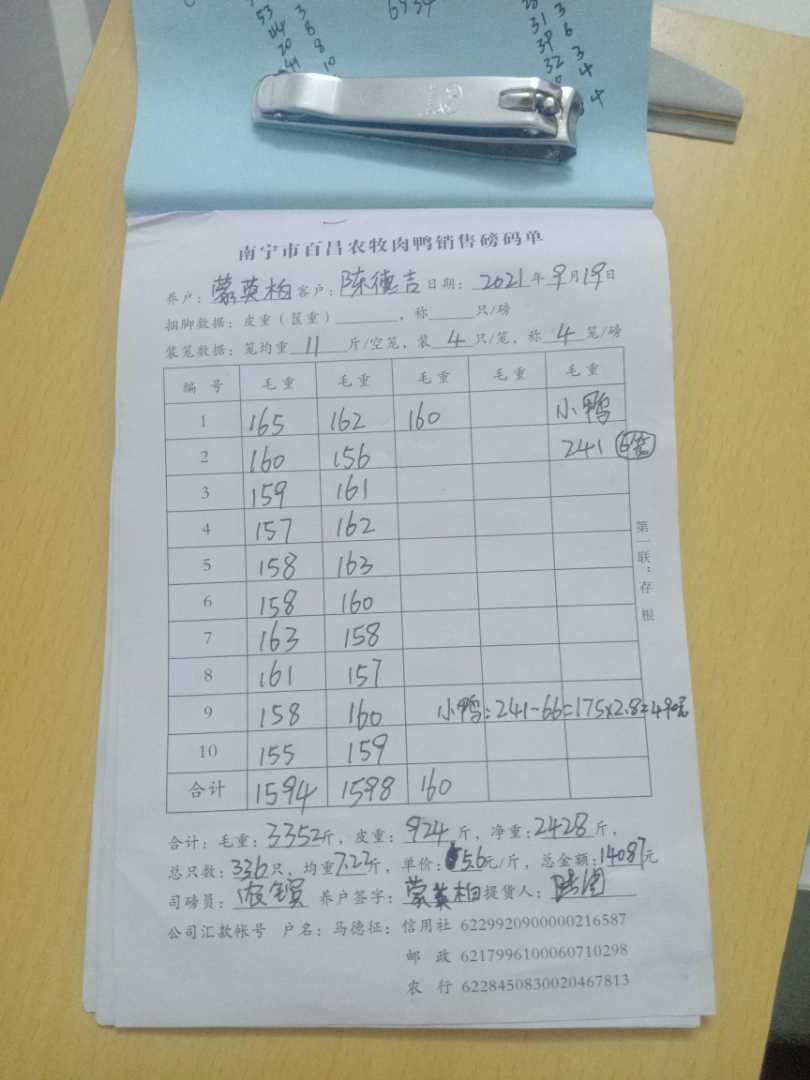 53 3
44 8
20 8
41 10
6934
31 3
39 6
32 3
4
4
南宁市百昌农牧肉鸭销售磅码单
养户：蒙英柏 客户：陈德吉 日期：2021年9月19日
捆脚数据：皮重（筐重），称 只/磅
装笼数据：笼均重 11 斤/空笼，装 4 只/笼，称 4 笼/磅
编号 毛重 毛重 毛重 毛重 毛重
1 165 162 160 小鸭
2 160 156 241 6笼
3 159 161
4 157 162
5 158 163
6 158 160
7 163 158
8 161 157
9 158 160 小鸭：241-66=175×2.8=490元
10 155 159
合计 1594 1598 160
第一联：存根
合计：毛重：3352斤，皮重：924斤，净重：2428斤，
总只数：336只，均重7.23斤，单价：5.6元/斤，总金额：14087元
司磅员： 养户签字：蒙英柏 提货人：
公司汇款帐号 户名：马德征：信用社 6229920900000216587
邮政 6217996100060710298
农行 6228450830020467813